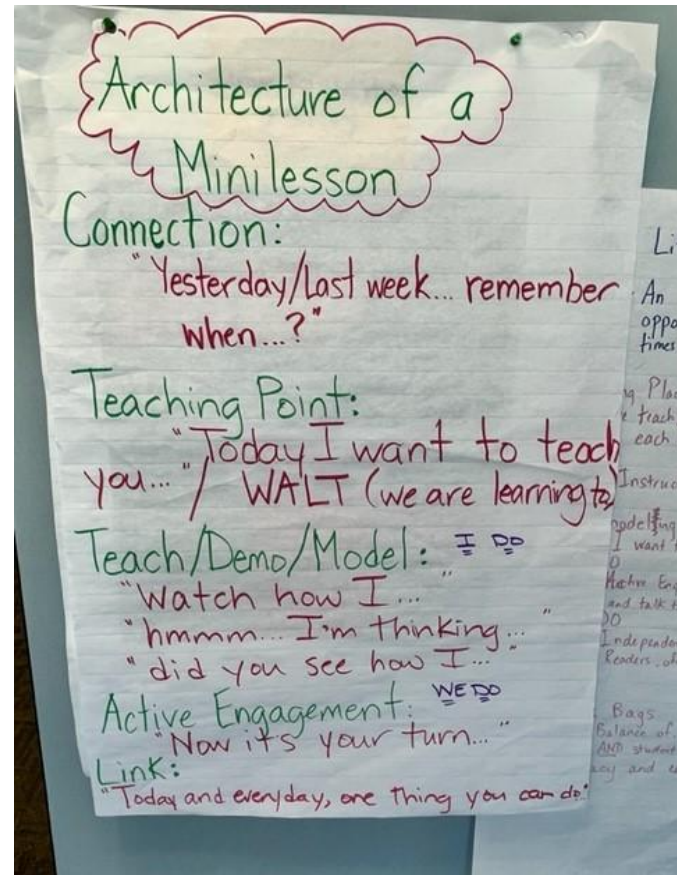 Architecture of a
Minilesson
Connection:
"Yesterday/Last week... remember
when...?"
Teaching Point:
"Today I want to teach
you..." / WALT (we are learning to)
Teach/Demo/Model: I DO
"Watch how I... "
"hmmm... I'm thinking... "
"did you see how I... "
Active Engagement: WE DO
"Now it's your turn... "
Link:
"Today and everyday, one thing you can do"
Li
An
oppo
times
Pla
teach
each
Instruc
I want
and talk t
DO
Independ
Readers
Bags
Balance of
AND student
and